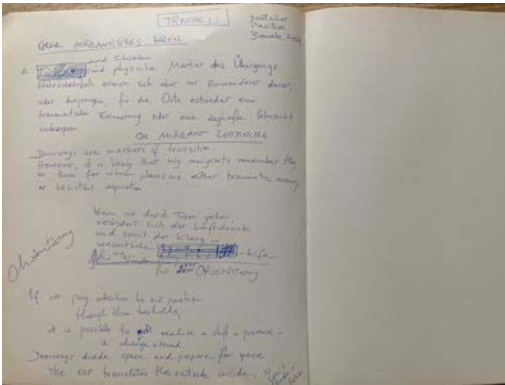 Deutscher
Pavillon
ÜBER MIGRANTISCHES HÖREN
und Schwellen
sind physische Marker des Übergangs
Wahrscheinlich erinnern sich aber nur Einwanderer daran,
oder diejenigen, für die Orte entweder eine
traumatische Erinnerung oder eine zaghafte Sehnsucht
verkörpern
ON MIGRANT LISTENING
Doorways are markers of transition
However, it is likely that only migrants remember this
or those for whom places are either traumatic memory
or hesitant aspiration
Wenn wir durch Türen gehen
verändert sich der Luftdruck
und somit der Klang
wesentliche
-hilfe
für ORIENTIERUNG
If we pay attention to our position
through thresholds,
it is possible to realise a shift in pressure
a change in sound.
Doorways divide space and prepare for space
The ear translates the outside inside.